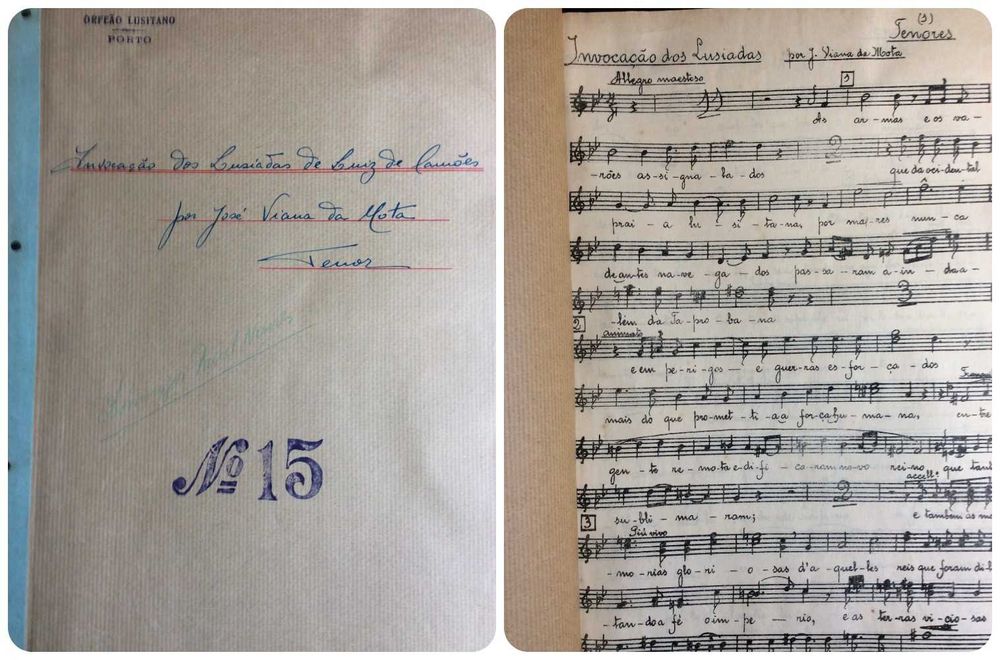 ORFEÃO LUSITANO
PORTO
Invocação dos Lusiadas de Luiz de Camões
por José Viana da Mota
Tenor
Nº 15
(3)
Tenores
Invocação dos Lusiadas por J. Viana da Mota
Allegro maestoso
1
As ar-mas e os va-
2
-rões as-si-gna-la-dos que da occiden-tal
prai-a lu-si-tana, por ma-res nun-ca
de antes na-ve-ga-dos pas-sa-ram a-in-da a-
3
-lém da Ta-pro-ba-na
2
animato
e em pe-ri-gos e guer-ras es-for-ça-dos
mais do que pro-met-ti-a a força hu-ma-na, en-tre
gen-te re-mo-ta e di-fi-ca-ram no-vo rei-no que tan
accell.
2
su-bli-ma-ram; e tambem as me
3
Più vivo
-morias glo-ri-o-sas d'a-quel-les reis que foram di-l
-tan-do a fé o im-pe-rio, e as ter-ras vi-cio-sas